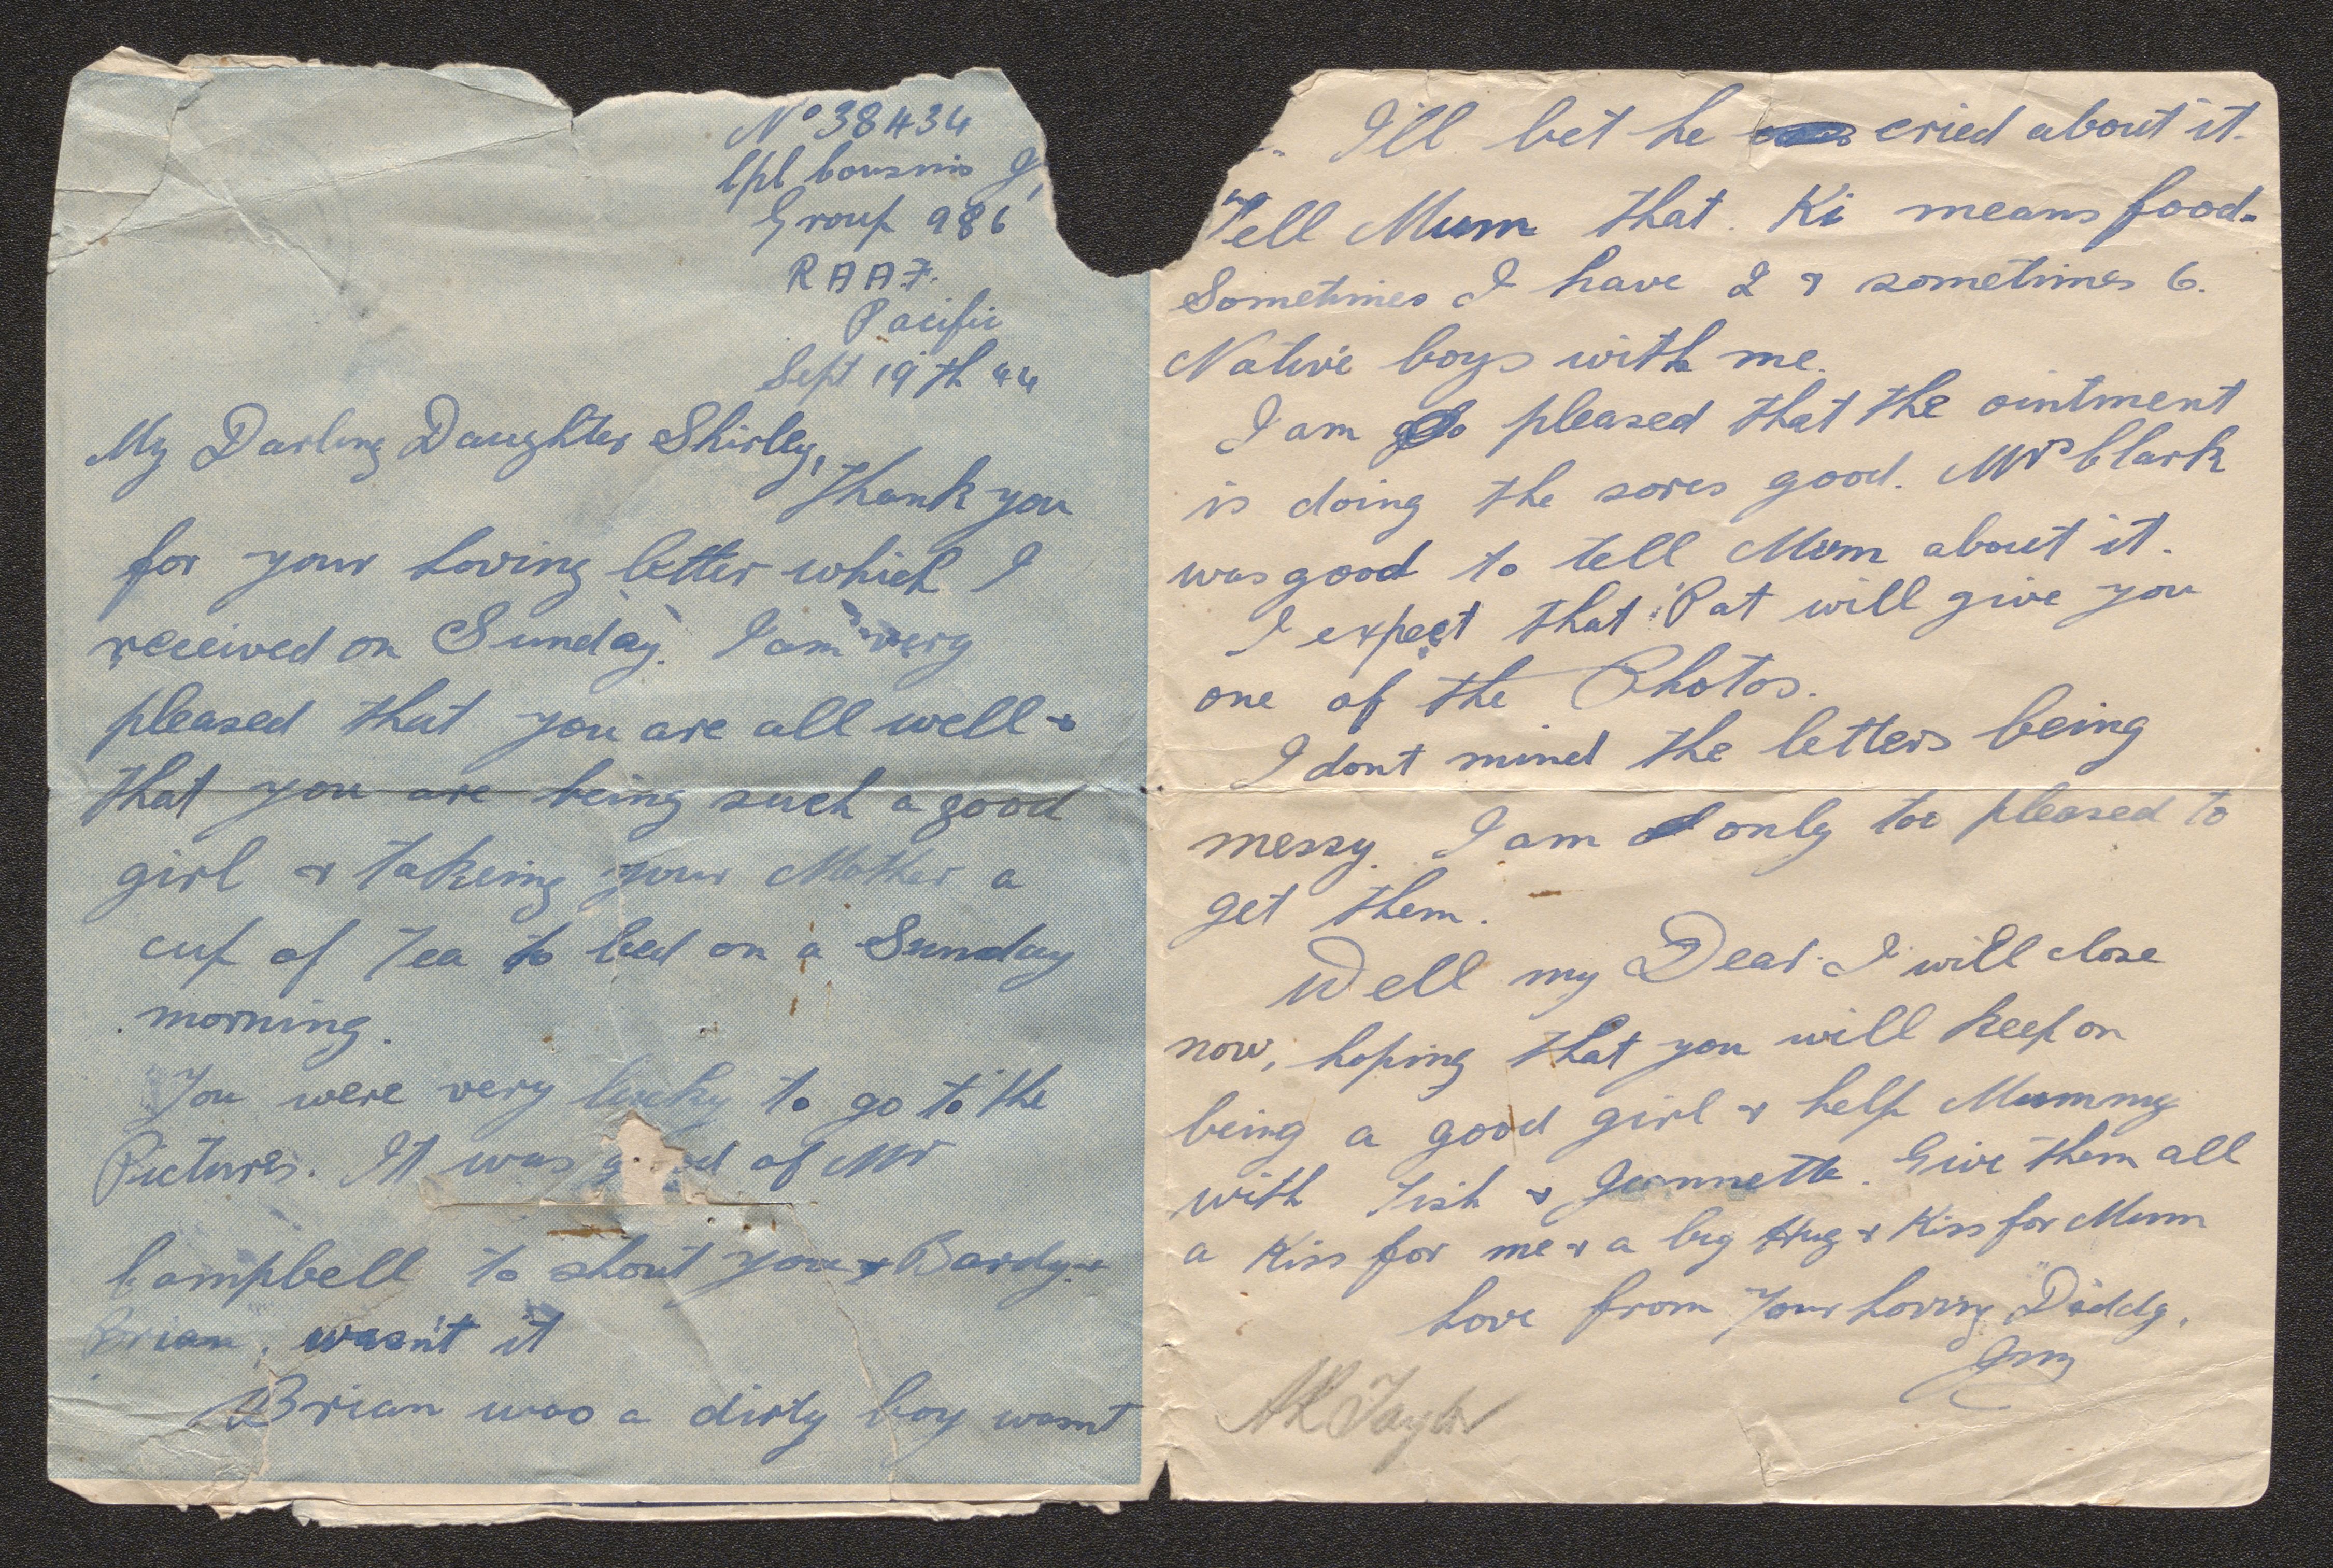 No 38434
Cpl Cousins J,
Group 986
RAAF.
Pacific
Sept 19th 44
My Darling Daughter Shirley,
Thank you
for your loving letter which I
received on Sunday. I am very
pleased that you are all well &
that you are being such a good
girl & takeing your Mother a
cup of Tea to bed on a Sunday
morning.
You were very lucky to go to the
Pictures. It was of Mr
Campbell to shout you & Bardy &
Brian, wasn't it
Brian was a dirty boy wasnt
I'll bet he cried about it.
Tell Mum that Ki means food.
Sometimes I have 2 & sometimes 6.
Native boys with me.
I am so pleased that the ointment
is doing the sores good. Mrs Clark
was good to tell Mum about it.
I expect that Pat will give you
one of the Photos.
I dont mind the letters being
messy. I am only too pleased to
get them.
Well my Dear I will close
now, hoping that you will keep on
being a good girl & help Mummy
with Tish & Jeannette. Give them all
a Kiss for me & a big Hug & Kiss for Mum
Love from Your Loving Daddy.
Jim
Taylor